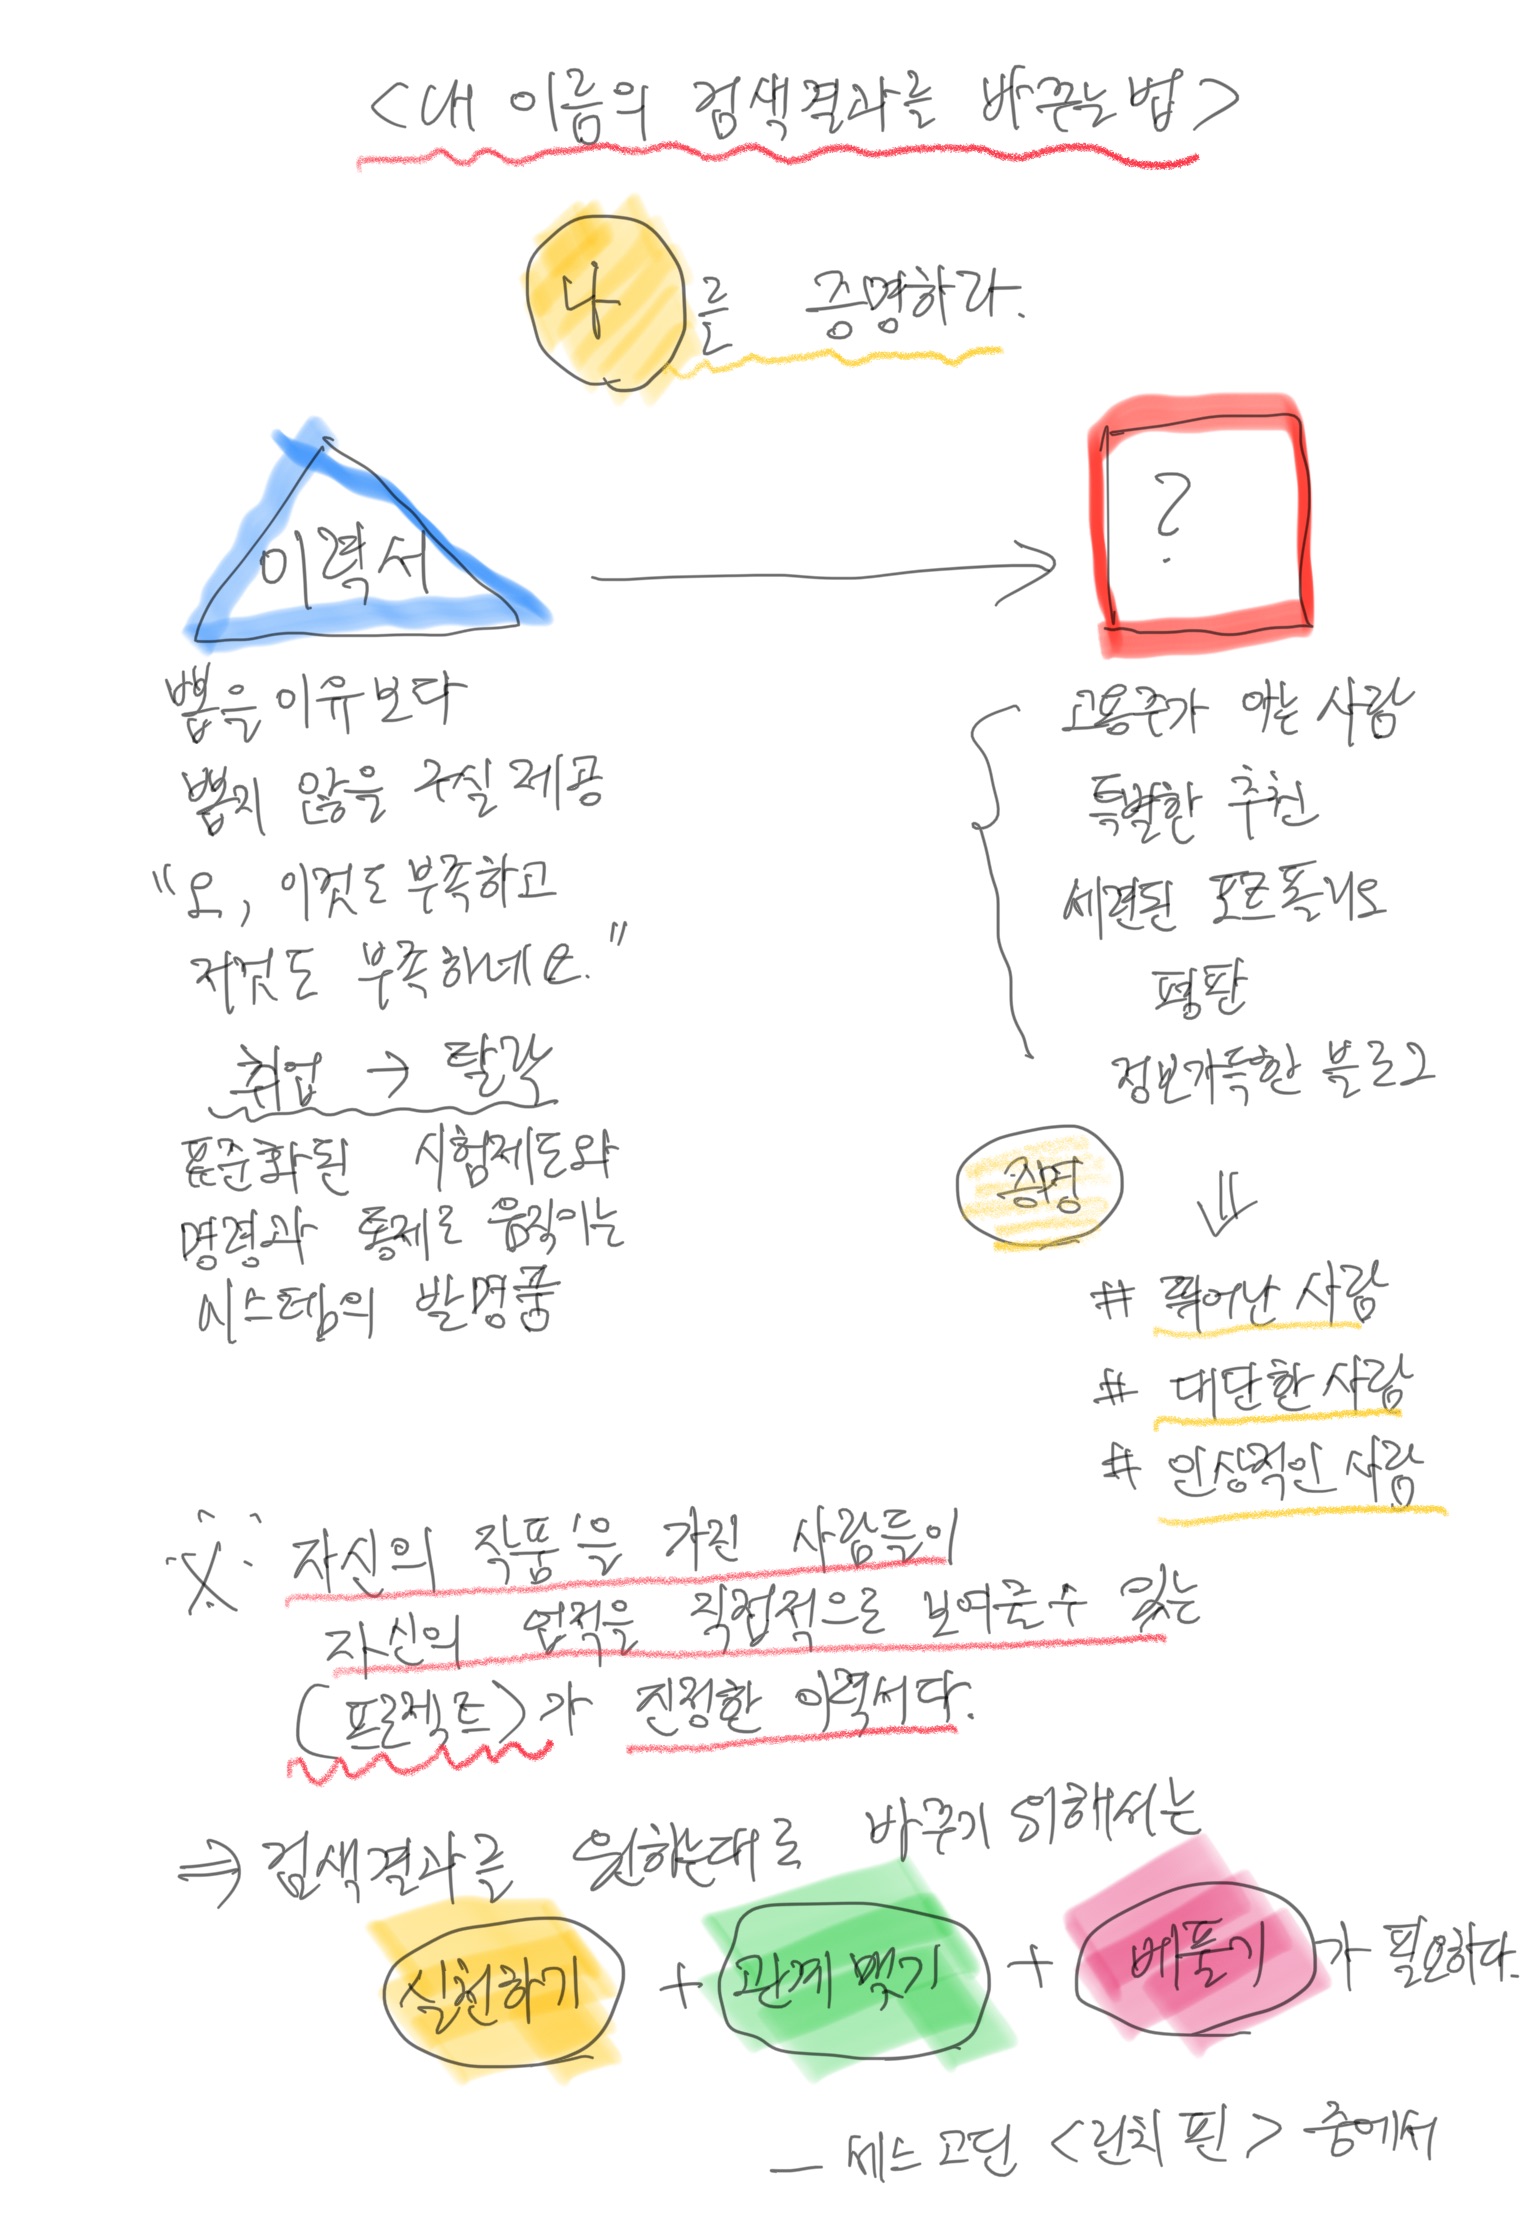 <내 이름의 검색결과를 바꾸는법>
나를 증명하라.
이력서
?
뽑을 이유보다
뽑지 않을 구실 제공
"오, 이것도 부족하고
저것도 부족하네요."
취업 → 탈락
표준화된 시험제도와
명령과 통제로 움직이는
시스템의 발명품
고용주가 아는 사람
특별한 추천
세련된 포트폴리오
평판
정보가득한 블로그
증명
# 뛰어난 사람
# 대단한 사람
# 인상적인 사람
※ 자신의 작품'을 가진 사람들이
자신의 업적을 직접적으로 보여줄 수 있는
(프로젝트)가 진정한 이력서다.
⇒ 검색결과를 원하는대로 바꾸기 위해서는
실천하기 + 관계 맺기 + 베풀기가 필요하다.
— 세스 고딘 <린치핀> 중에서